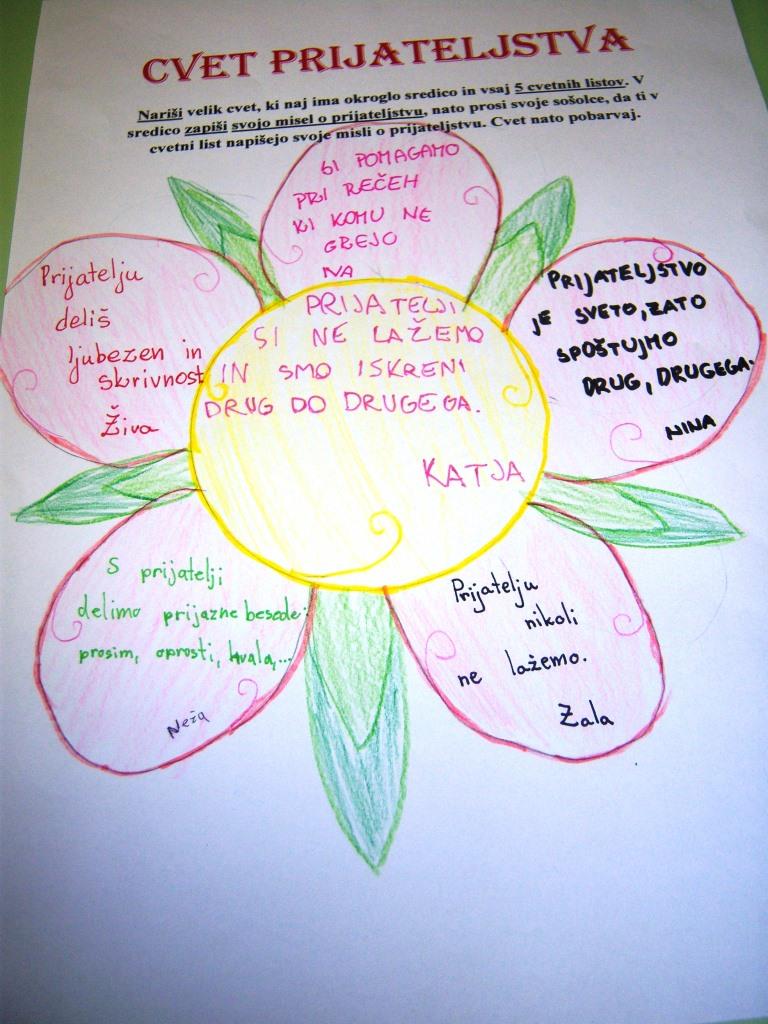 CVET PRIJATELJSTVA
Nariši velik cvet, ki naj ima okroglo sredico in vsaj 5 cvetnih listov. V
sredico zapiši svojo misel o prijateljstvu, nato prosi svoje sošolce, da ti v
cvetni list napišejo svoje misli o prijateljstvu. Cvet nato pobarvaj.
SI POMAGAMO
PRI REČEH
KI KOMU NE
GREJO
NA
Prijatelju
deliš
ljubezen in
skrivnost
Živa
PRIJATELJSTVO
JE SVETO, ZATO
SPOŠTUJMO
DRUG, DRUGEGA.
NINA
PRIJATELJI
SI NE LAŽEMO
IN SMO ISKRENI
DRUG DO DRUGEGA.
KATJA
S prijatelji
delimo prijazne besede:
prosim, oprosti, hvala,...
Neža
Prijatelju
nikoli
ne lažemo.
Zala